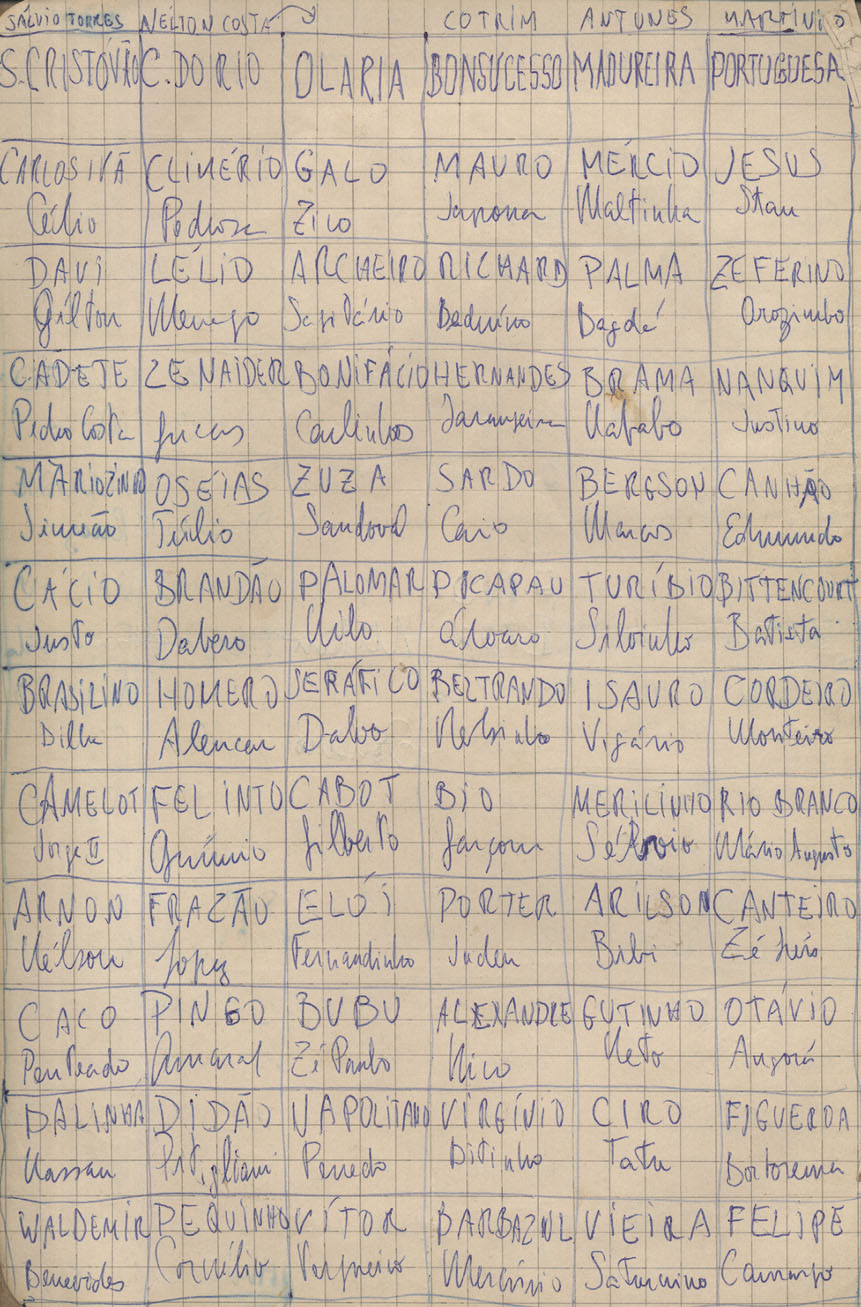 SÁLVIO TORRES NÉLTON COSTA COTRIM ANTUNES MARTINHO
S.CRISTÓVÃO C.DO RIO OLARIA BONSUCESSO MADUREIRA PORTUGUESA
CARLOS IVÃ CLIMÉRIO GALO MAURO MÉRCIO JESUS
Célio Pedrosa Zico Japona Maltinha Stan
DAVI LÉLIO ARCHEIRO RICHARD PALMA ZEFERINO
Gílton Menego Sagitário Beduíno Bagdá Orozimbo
CADETE ZENAIDER BONIFÁCIO HERNANDES BRAMA NANQUIM
Pedro Costa Lucas Carlinhos Laranjeira Nababo Justino
MARIOZINHO OSÉIAS ZUZA SARDO BERGSON CANHÃO
Simeão Túlio Sandoval Caio Marcos Edmundo
CÁCIO BRANDÃO PALOMAR PICAPAU TURÍBIO BITTENCOURT
Justo Dabero Nilo Álvaro Silvinho Batista
BRASILINO HOMERO SERÁFICO BELTRANDO ISAURO CORDEIRO
Alencar Dalvo Nelsinho Vigário Monteiro
CAMELOT FELINTO CABOT BIO MERILINHO RIO BRANCO
Jorge II Gilberto Garçom Mário Augusto
ARNON FRAZÃO ELÓI PORTER ARILSON CANTEIRO
Nélson Lopez Fernandinho Juden Bibi
CACO PINGO BUBU ALEXANDRE GUTINHO OTÁVIO
Penteado Amaral Zé Paulo Nico Neto Angorá
DALINHA DIDÃO NAPOLITANO VIRGÍNIO CIRO FIGUEROA
Nassau Pitigliani Penedo Ditinho Tatu Borborema
WALDEMIR PEQUINHO VÍTOR BARBAZUL VIEIRA FELIPE
Benevides Cornélio Vergueiro Mercúrio Saturnino Camargo